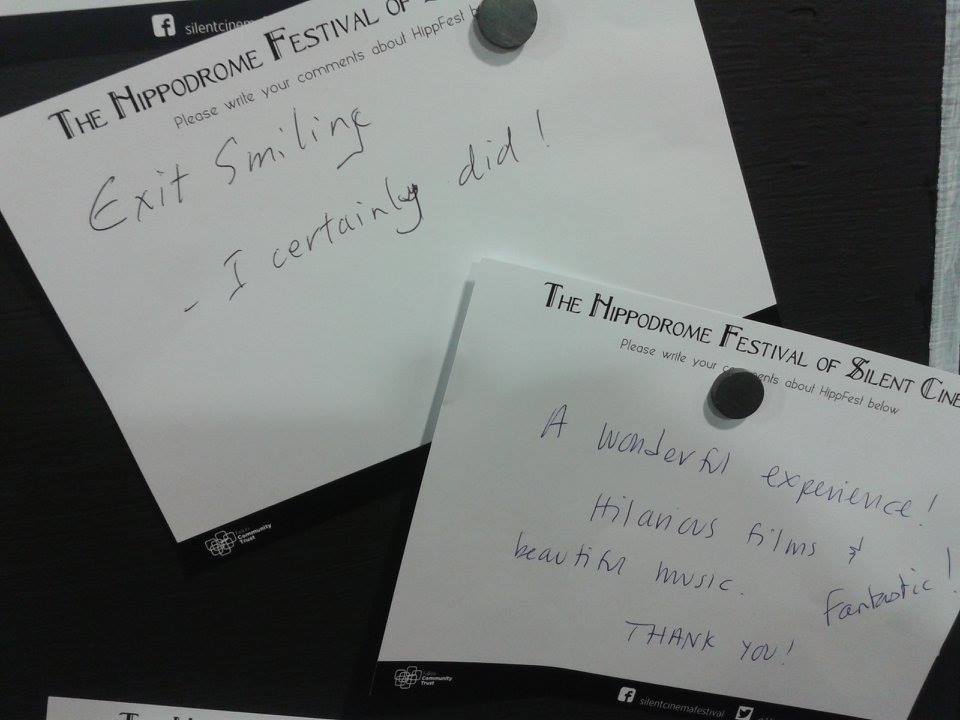 silentcinem
THE HIPPODROME FESTIVAL OF
Please write your comments about HippFest
Exit Smiling
- I certainly did!
Falkirk
Community
Trust
THE HIPPODROME FESTIVAL OF SILENT CINE
Please write your comments about HippFest below
A wonderful experience!
Hilarious films &
beautiful music. Fantastic!
THANK YOU!
Falkirk
Community
Trust
silentcinemafestival